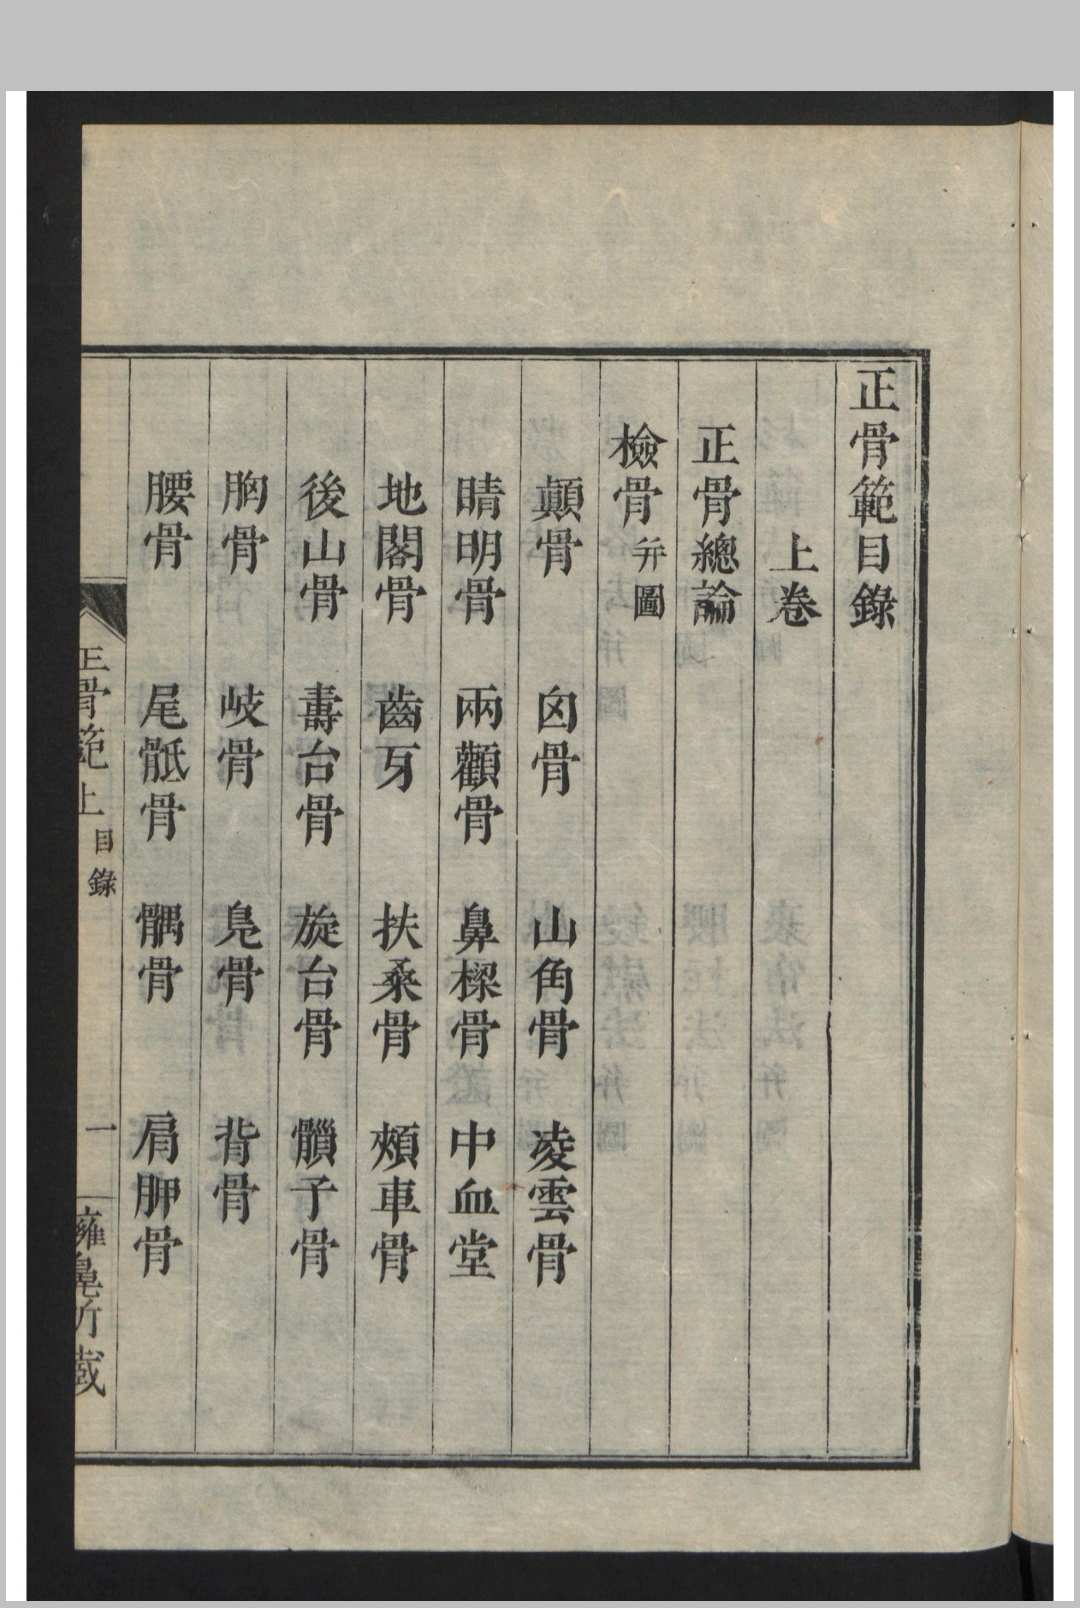 正骨範目錄
上卷
正骨總論
檢骨并圖
顛骨　囟骨　山角骨　凌雲骨
睛明骨　兩顴骨　鼻樑骨　中血堂
地閣骨　齒牙　扶桑骨　頰車骨
後山骨　壽台骨　旋台骨　䪼子骨
胸骨　岐骨　鳧骨　背骨
腰骨　尾骶骨　髃骨　肩胛骨
正骨範上　目錄　一